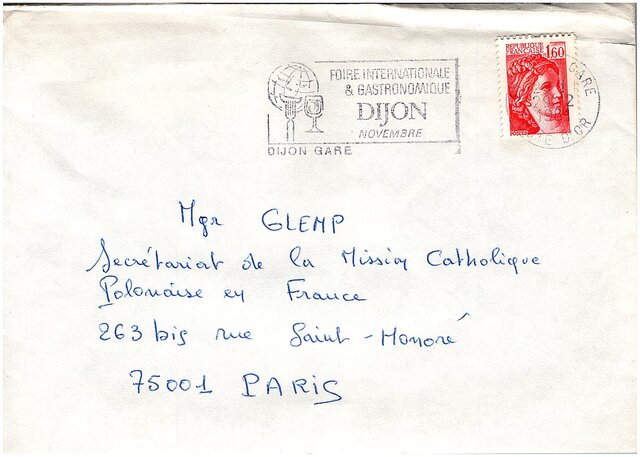 FOIRE INTERNATIONALE
& GASTRONOMIQUE
DIJON
NOVEMBRE
DIJON GARE
REPUBLIQUE
FRANÇAISE
1,60
POSTES
GARE
D'OR
Mgr GLEMP
Secrétariat de la Mission Catholique
Polonaise en France
263 bis rue Saint-Honoré
75001 PARIS